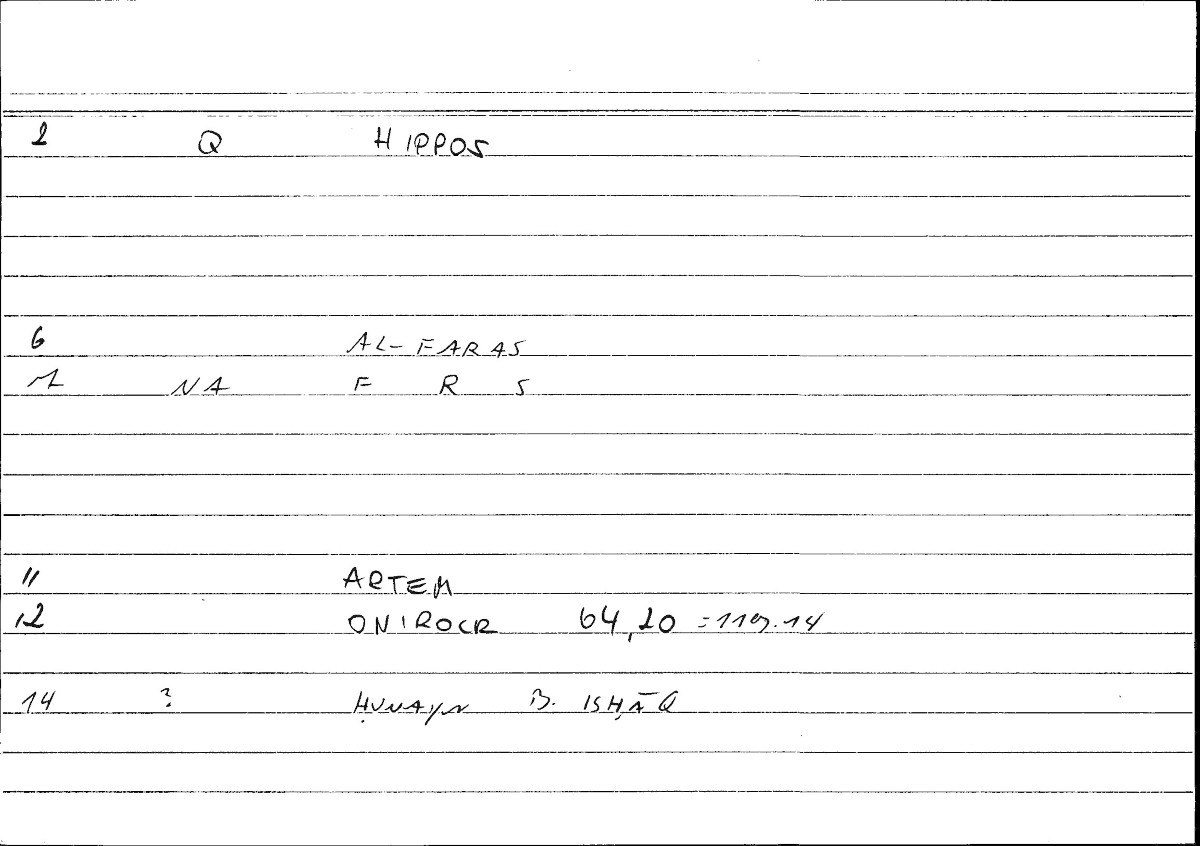 2 Q HIPPOS
6 AL-FARAS
NA F R S
11 ARTEM
12 ONIROCR 64,20 = 119.14
14 ? ḤUNAYN B. ISḤĀQ